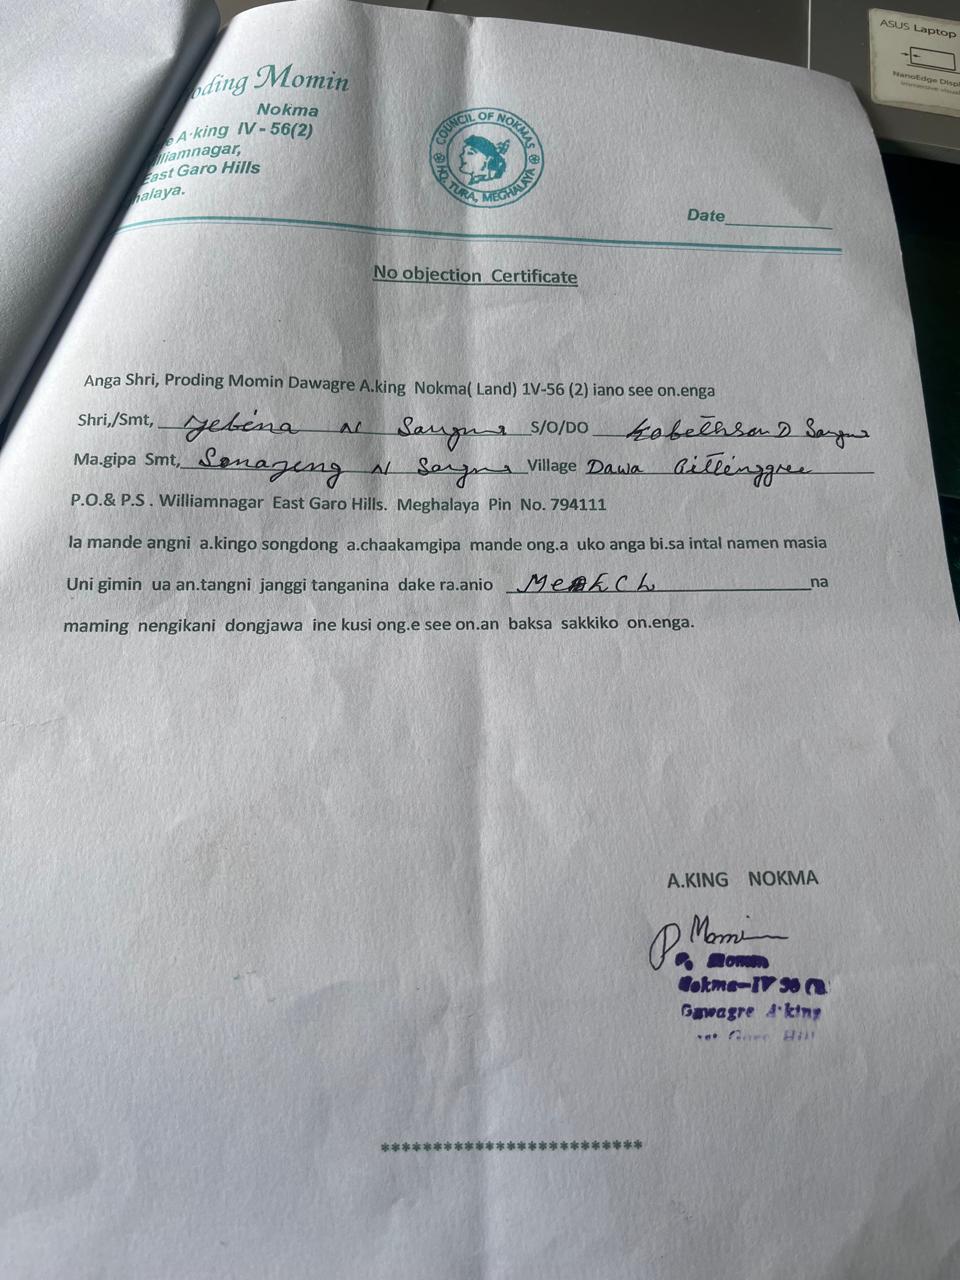 oding Momin
Nokma
e A·king IV - 56(2)
lliamnagar,
East Garo Hills
halaya.
COUNCIL OF NOKMAS
HQ. TURA, MEGHALAYA
Date
No objection Certificate
Anga Shri, Proding Momin Dawagre A.king Nokma( Land) 1V-56 (2) iano see on.enga
Shri,/Smt, Jebina N Sangma S/O/DO Kabethson D Sangma
Ma.gipa Smt, Sonajeng N Sangma Village Dawa Gittinggree
P.O.& P.S . Williamnagar East Garo Hills. Meghalaya Pin No. 794111
Ia mande angni a.kingo songdong a.chaakamgipa mande ong.a uko anga bi.sa intal namen masia
Uni gimin ua an.tangni janggi tanganina dake ra.anio na
maming nengikani dongjawa ine kusi ong.e see on.an baksa sakkiko on.enga.
A.KING NOKMA
P Momin
P. Momin
Nokma-IV
Gawagre A·king
Garo Hill
************************
ASUS Laptop
NanoEdge Displ
immersive visual